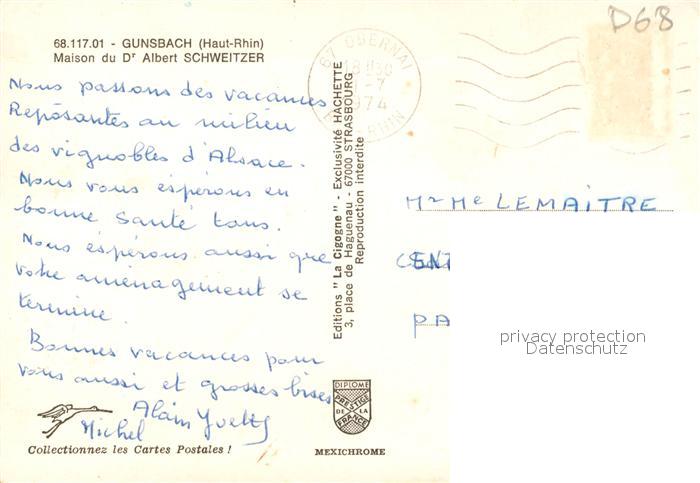 D68
68.117.01 - GUNSBACH (Haut-Rhin)
Maison du Dr Albert SCHWEITZER
67 OBERNAI
1974
RHIN
Nous passons des vacances
Repòsantes au milieu
des vignobles d'Alsace.
Nous vous espérons en
bonne santé tous.
Nous espérons aussi que
votre aménagement se
termine.
Bonnes vacances pour
vous aussi et grosses bises
Alain Yvette
Michel
Collectionnez les Cartes Postales !
Editions " La Cigogne " - Exclusivité HACHETTE
3, place de Haguenau - 67000 STRASBOURG
Reproduction interdite
DIPLOME
PRESTIGE
DE LA
FRANCE
MEXICHROME
Mr Me LEMAITRE
PA
privacy protection
Datenschutz